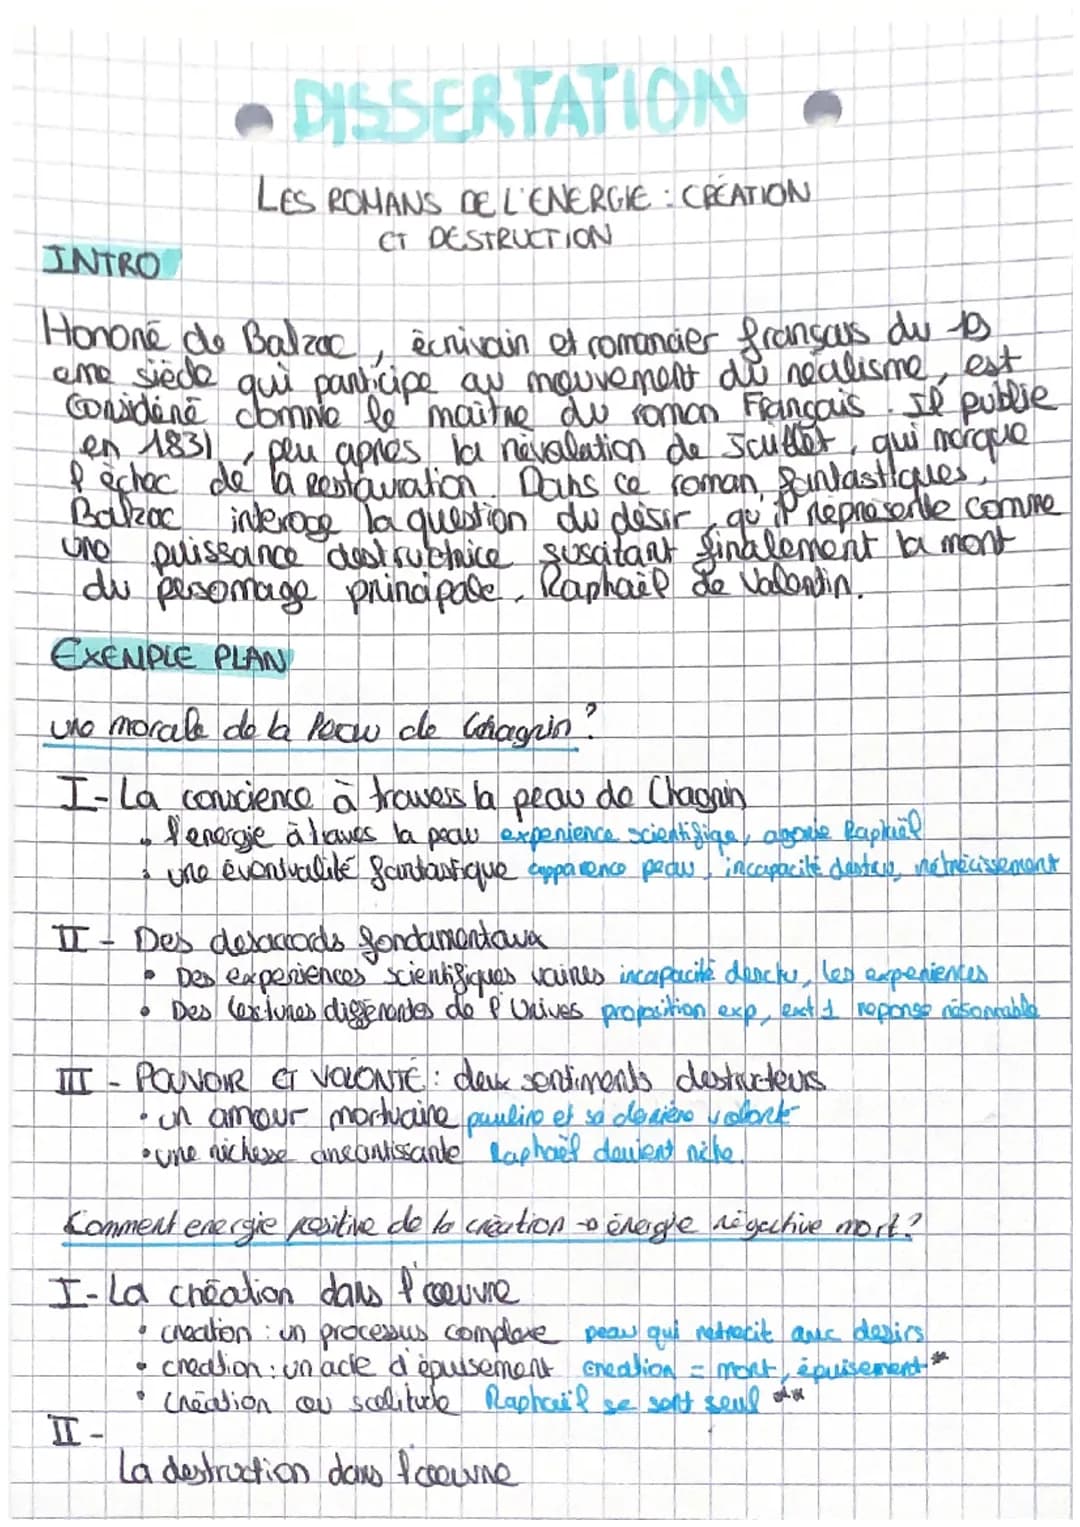 DISSERTATION
LES ROMANS DE L'ENERGIE : CRÉATION
ET DESTRUCTION
INTRO
Honoré de Balzac, écrivain et romancier français du 19
eme siècle qui participe au mouvement du réalisme, est
Considéré comme le maître du roman Français. Il publie
en 1831, peu apres la révolation de Juillet, qui marque
l'échec de la restauration. Dans ce roman fantastiques,
Balzac interoge la question du désir, qu'il représente comme
une puissance destructrice suscitant finalement la mort
du personnage principale, Raphaël de Valentin.
EXEMPLE PLAN
une morale de la Peau de Chagrin ?
I- La conscience à travers la peau de Chagrin
• l'energie à travers la peau experience scientifique, agonie Raphaël
• une éventualité fantastique apparence peau, incapacité destru, rétrécissement
II - Des desaccords fondamentaux
• Des experiences scientifiques vaines incapacité destru, les experiences
• Des lectures différentes de l'Univers proposition exp, ext 1 reponse raisonnable
III - POUVOIR ET VOLONTÉ : deux sentiments destructeurs
• un amour mortuaire pauline et sa dernière volonté
• une richesse anéantissante Raphaël devient riche.
Comment energie positive de la création → énergie négative mort ?
I- La création dans l'oeuvre
• creation : un processus complexe peau qui retrecit avec desirs
• creation : un acte d'épuisement creation = mort, épuisement *
• Création ou scolitude Raphaël se sent seul **
II -
La destruction dans l'oeuvre